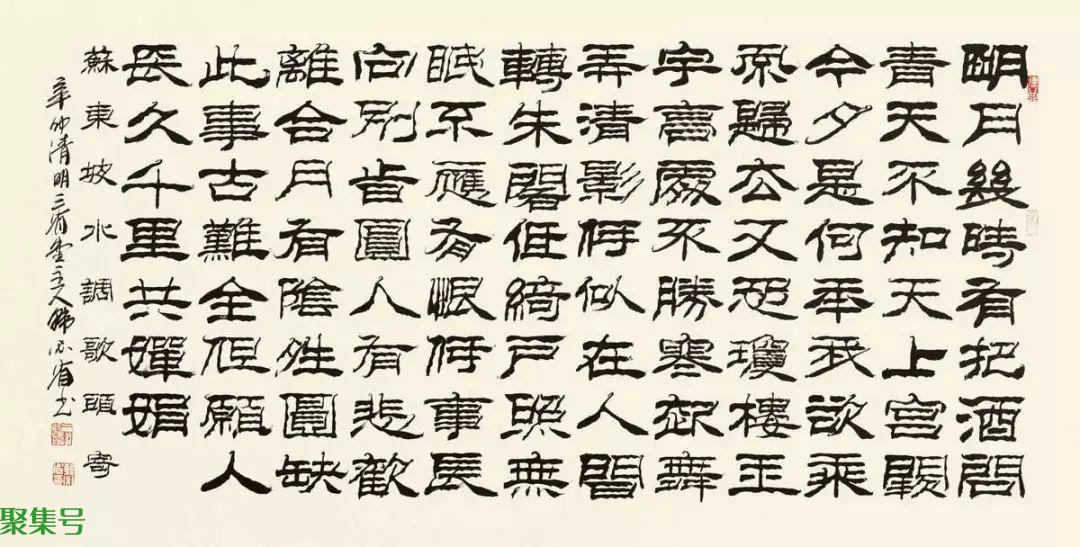 明月幾時有把酒問
青天不知天上宮闕
今夕是何年我欲乘
風歸去又恐瓊樓玉
宇高處不勝寒起舞
弄清影何似在人間
轉朱閣低綺戶照無
眠不應有恨何事長
向別皆圓人有悲歡
離合月有陰晴圓缺
此事古難全但願人
長久千里共嬋娟
蘇東坡水調歌頭
辛卯清明三省堂主人
聚集号